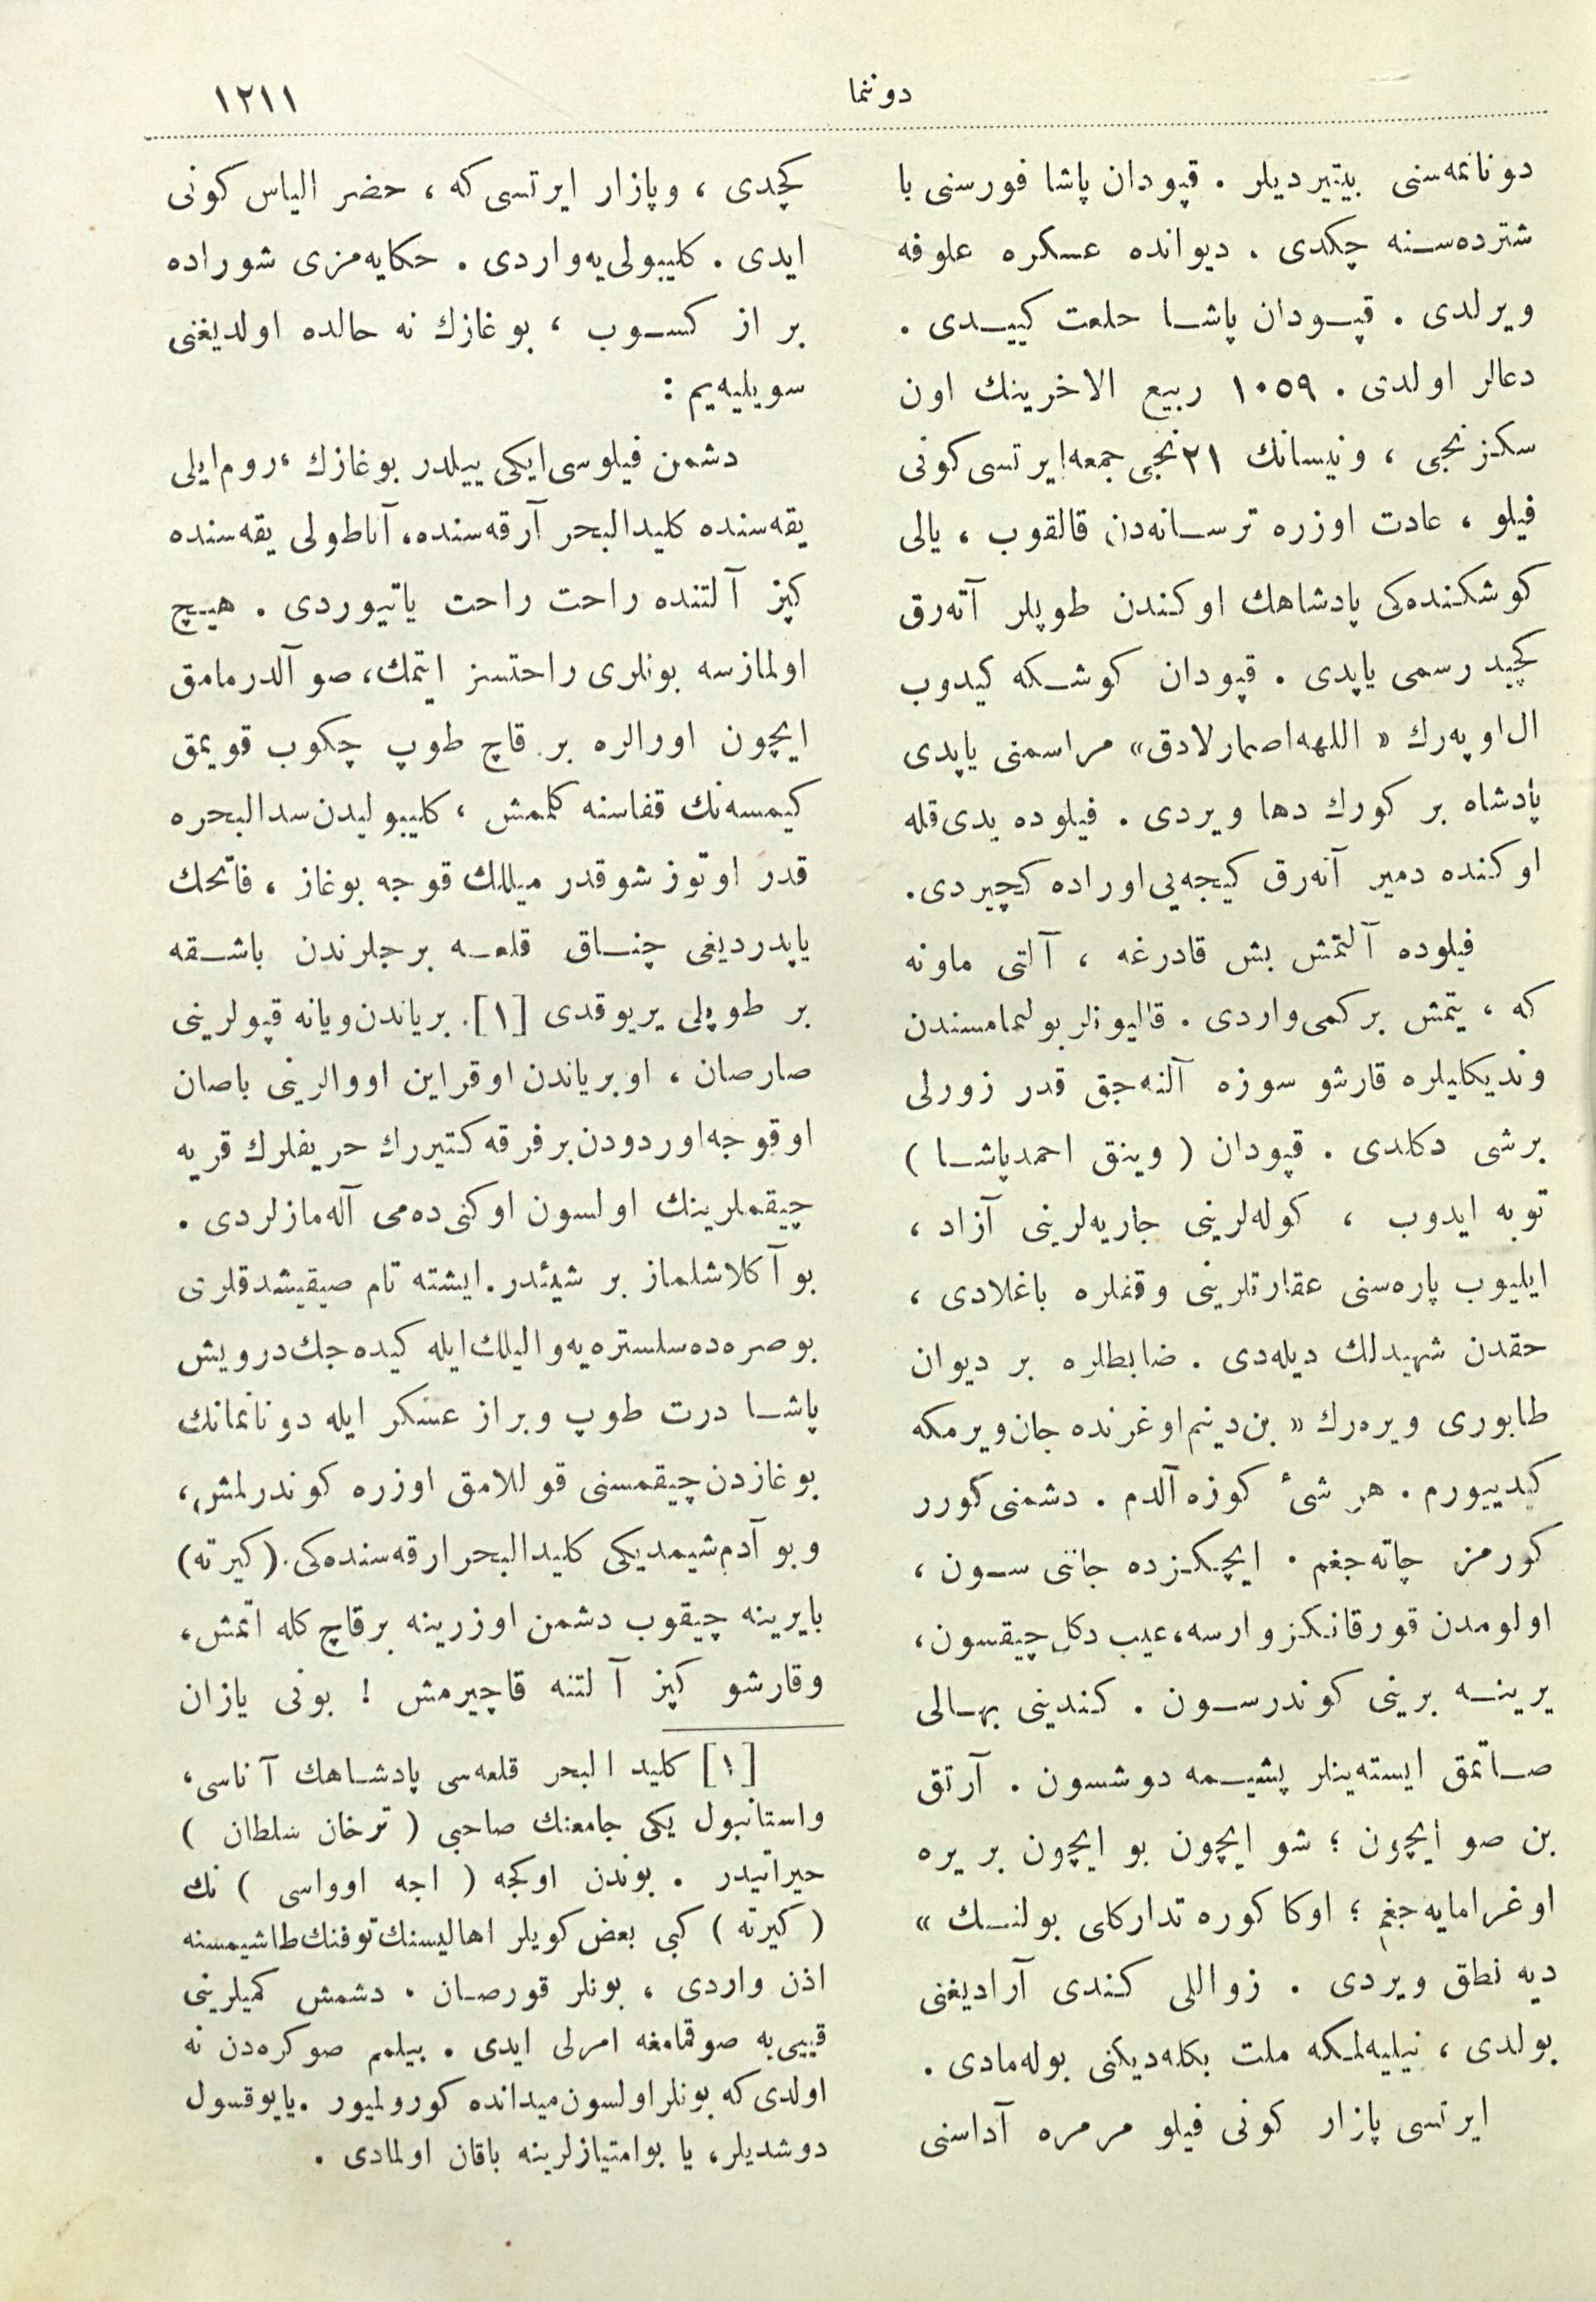 دوننما
١٢١١
دونانمه‌سنی بیتیردیلر . قپودان پاشا فورسنی با
شترده‌سنه چکدی . دیوانده عسکره علوفه
ویرلدی . قپودان پاشا حلعت کییدی .
دعالر اولدی . ١٠٥٩ ربیع الاخرینك اون
سکزنجی ، ونیسانك ٢١ نجی جمعه‌ایرتسی کونی
فیلو ، عادت اوزره ترسانه‌دن قالقوب ، یالی
کوشکنده‌کی پادشاهك اوکندن طوپلر آته‌رق
کچید رسمی یاپدی . قپودان کوشکه کیدوب
ال‌اوپه‌رك « اللهه‌اصمارلادق » مراسمنی یاپدی
پادشاه بر کورك دها ویردی . فیلوده یدی‌قله
اوکنده دمیر آته‌رق کیجه‌یی‌اوراده کچیردی.
فیلوده آلتمش بش قادرغه ، آلتی ماونه
که ، یتمش برکمی‌واردی . قالیونلر بولنمامسندن
وندیکلیلره قارشو سوزه آلنه‌جق قدر زورلی
برشی دکلدی . قپودان ( وینق احمدپاشا )
توبه ایدوب ، کوله‌لرینی جاریه‌لرینی آزاد ،
ایلیوب پاره‌سنی عقارتلرینی وقفلره باغلادی ،
حقدن شهیدلك دیله‌دی . ضابطلره بر دیوان
طابوری ویره‌رك « بن‌دینم‌اوغرنده جان‌ویرمکه
کیدییورم . هر شیٔ کوزه آلدم . دشمنی کورر
کورمز چاته‌جغم . ایچکزده جاننی سون ،
اولومدن قورقانکز وارسه، عیب دکل چیقسون،
یرینه برینی کوندرسون . کندینی بهالی
صاتمق ایسته‌ینلر پشیمه دوشسون . آرتق
بن صو ایچون ؛ شو ایچون بو ایچون بر یره
اوغرامایه‌جغم ؛ اوکا کوره تدارکلی بولنك »
دیه نطق ویردی . زواللی کندی آرادیغنی
بولدی ، نیلیه‌لمکه ملت بکله‌دیکنی بوله‌مادی .
ایرتسی پازار کونی فیلو مرمره آداسنی
کچدی ، وپازار ایرتسی که ، حضر الیاس کونی
ایدی . کلیبولی‌یه‌واردی . حکایه‌مزی شوراده
بر از کسوب ، بوغازك نه حالده اولدیغنی
سویلیه‌یم :
دشمن فیلوسی‌ایکی ییلدر بوغازك ، روم‌ایلی
یقه‌سنده کلیدالبحر آرقه‌سنده، آناطولی یقه‌سنده
کپز آلتنده راحت راحت یاتیوردی . هیچ
اولمازسه بونلری راحتسز ایتمك، صو آلدرمامق
ایچون اورالره بر قاچ طوپ چکوب قویمق
کیمسه‌نك قفاسنه کلممش ، کلیبولیدن سدالبحره
قدر اوتوز شوقدر میللك قوجه بوغاز ، فاتحك
یاپدردیغی چناق قلعه برجلرندن باشقه
بر طوپلی یریوقدی [١]. بریاندن‌ویانه قپولرینی
صارصان ، اوبریاندن اوقراین اووالرینی باصان
اوقوجه‌اوردودن‌برفرقه کتیررك حریفلرك قریه
چیقملرینك اولسون اوکنی ده‌می آله‌مازلردی .
بو آکلاشلماز بر شیئدر. ایشته تام صیقیشدقلری
بوصره‌ده‌سلستره‌یه‌والیلك‌ایله کیده‌جك‌درویش
پاشا درت طوپ وبراز عسکر ایله دونانمانك
بوغازدن‌چیقمسنی قوللامق اوزره کوندرلمش،
وبو آدم‌شیمدیکی کلیدالبحر ارقه‌سنده‌کی. (کیرته)
بایرینه چیقوب دشمن اوزرینه برقاچ کله اتمش،
وقارشو کپز آلتنه قاچیرمش ! بونی یازان
[١] کلید البحر قلعه‌سی پادشاهك آناسی،
واستانبول یکی جامعنك صاحبی ( ترخان سلطان )
حیراتیدر . بوندن اوکجه ( اجه اوواسی ) نك
( کیرته ) کبی بعض کویلر اهالیسنك‌توفنك‌طاشیمسنه
اذن واردی ، بونلر قورصان . دشمش کمیلرینی
قییی‌یه صوقمامغه امرلی ایدی . بیلمم صوکره‌دن نه
اولدی‌که بونلر اولسون‌میدانده کورولمیور . یابوقسول
دوشدیلر، یا بوامتیازلرینه باقان اولمادی .